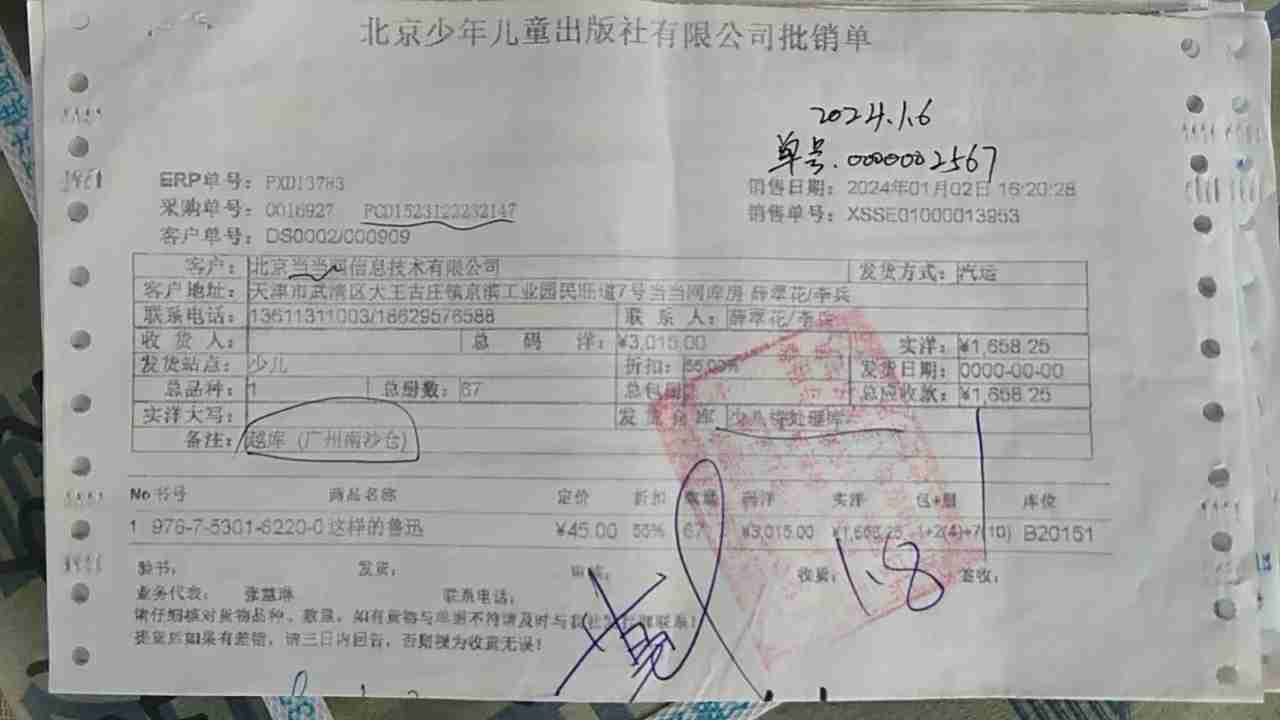 北京少年儿童出版社有限公司批销单
2024.1.6
单号.0000002567
ERP单号：PXD13783
销售日期：2024年01月02日 16:20:28
采购单号：0016927 PCD1523122232147
销售单号：XSSE01000013953
客户单号：DS0002/000909
客户：北京当当网信息技术有限公司 发货方式：汽运
客户地址：天津市武清区大王古庄镇京滨工业园民旺道7号当当网库房 薛翠花/李兵
联系电话：13611311003/18629576588 联系人：薛翠花/李兵
收货人： 总码洋：¥3,015.00 实洋：¥1,658.25
发货站点：少儿 折扣：55.00% 发货日期：0000-00-00
总品种：1 总册数：67 总包 总应收款：¥1,658.25
实洋大写： 发货仓库
备注：越库（广州南沙仓）
No 书号 商品名称 定价 折扣 数量 码洋 实洋 包+册 库位
1 978-7-5301-6220-0 这样的鲁迅 ¥45.00 55% 67 ¥3,015.00 ¥1,658.25 1+2(4)+7(10) B20151
验书： 发货： 收货： 1.8 签收：
业务代表： 张慧琳 联系电话：
请仔细核对货物品种、数量，如有货物与单据不符请及时与我社发行部联系！
提货后如果有差错，请三日内回告，否则视为收货无误！